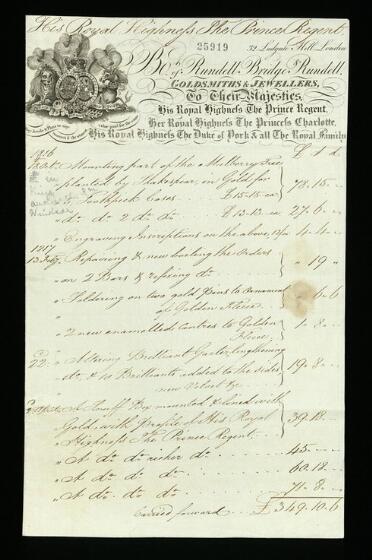 His Royal Highness The Prince Regent
25919
32 Ludgate Hill London
Bt. of Rundell Bridge & Rundell,
GOLDSMITHS & JEWELLERS,
To Their Majesties,
His Royal Highness The Prince Regent,
Her Royal Highness The Princess Charlotte,
His Royal Highness The Duke of York & all The Royal Family
£ s d
1816
Mounting part of the Mulberry Tree
planted by Shakespear, in Gold for
Toothpick Cases £15-15 ea 78.15 ..
do. do. 2 do. do. £13-13 ea 27.6 ..
Engraving Inscriptions on the above 4.4 ..
1817
13 Repairing & new the Orders
on 2 Bars & do. 19
Soldering on two gold to enameled
Golden Fleece 6.6
2 new enamelled centres to Golden
Fleece 1.8 ..
22 Altering Brilliant Garter, lengthening
do. & 10 Brilliants added to the sides
new Velvet &c. 19.8 ..
A Snuff Box mounted & lined with
Gold with profile of His Royal
Highness The Prince Regent 39.18 ..
A do. do. richer do. 45 ..
A do. do. do. 60.18 ..
A do. do. do. 71.8 ..
Carried forward £349.10.6